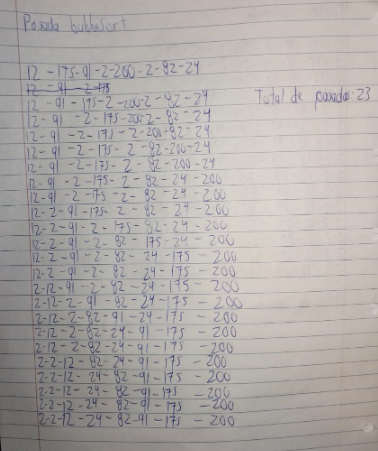 Pasada bubblesort
12 - 175 - 91 - 2 - 200 - 2 - 82 - 24
12 - 91 - 2 - 175
12 - 91 - 175 - 2 - 200 - 2 - 82 - 24
Total de pasadas: 23
12 - 91 - 2 - 175 - 200 2 - 82 - 24
12 - 91 - 2 - 175 - 2 - 200 - 82 - 24
12 - 91 - 2 - 175 - 2 - 82 - 200 - 24
12 - 91 - 2 - 175 - 2 - 82 - 200 - 24
12 - 91 - 2 - 175 - 2 - 82 - 24 - 200
12 - 91 - 2 - 175 - 2 - 82 - 24 - 200
12 - 2 - 91 - 175 - 2 - 82 - 24 - 200
12 - 2 - 91 - 2 - 175 - 82 - 24 - 200
12 - 2 - 91 - 2 - 82 - 175 - 24 - 200
12 - 2 - 91 - 2 - 82 - 24 - 175 - 200
12 - 2 - 91 - 2 - 82 - 24 - 175 - 200
2 - 12 - 91 - 2 - 82 - 24 - 175 - 200
2 - 12 - 2 - 91 - 82 - 24 - 175 - 200
2 - 12 - 2 - 82 - 91 - 24 - 175 - 200
2 - 12 - 2 - 82 - 24 - 91 - 175 - 200
2 - 12 - 2 - 82 - 24 - 91 - 175 - 200
2 - 2 - 12 - 82 - 24 - 91 - 175 - 200
2 - 2 - 12 - 24 - 82 - 91 - 175 - 200
2 - 2 - 12 - 24 - 82 - 91 - 175 - 200
2 - 2 - 12 - 24 - 82 - 91 - 175 - 200
2 - 2 - 12 - 24 - 82 - 91 - 175 - 200